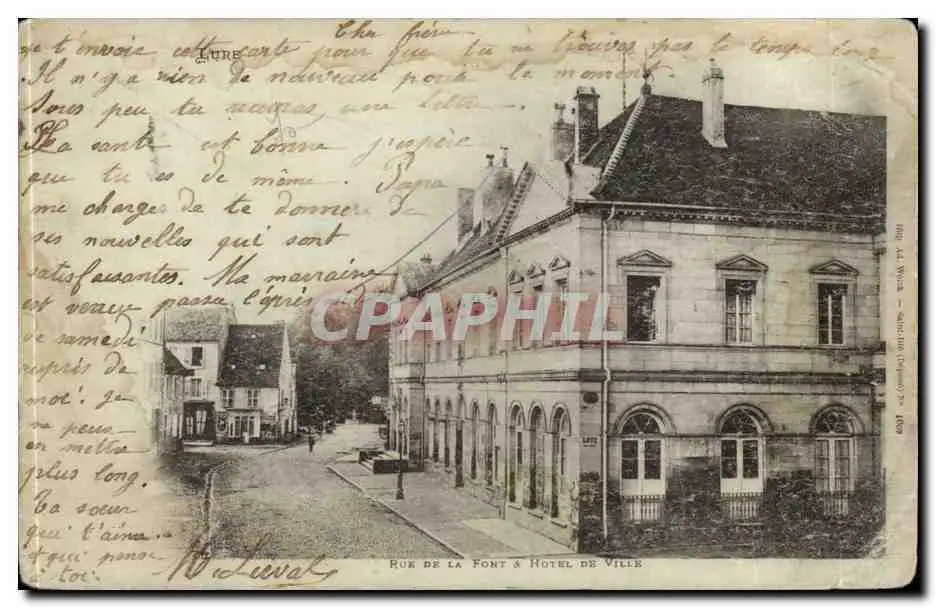 Cher frère
Je t'envoie cette carte pour que tu ne trouves pas le temps long
LURE
Il n'y a rien de nouveau pour le moment.
Sous peu tu recevras une lettre.
Ta santé est bonne j'espère
que tu es de même. Papa
me charge de te donner de
ses nouvelles qui sont
satisfaisantes. Ma marraine
est venue passer l'après
samedi
auprès de
moi. Je
ne peux
en mettre
plus long.
Ta sœur
qui t'aime
et qui pense
à toi.
CARTAPHIL
RUE DE LA FONT & HOTEL DE VILLE
Imp. Ad. Weick. — Saint-Dié (Déposé) No 1692